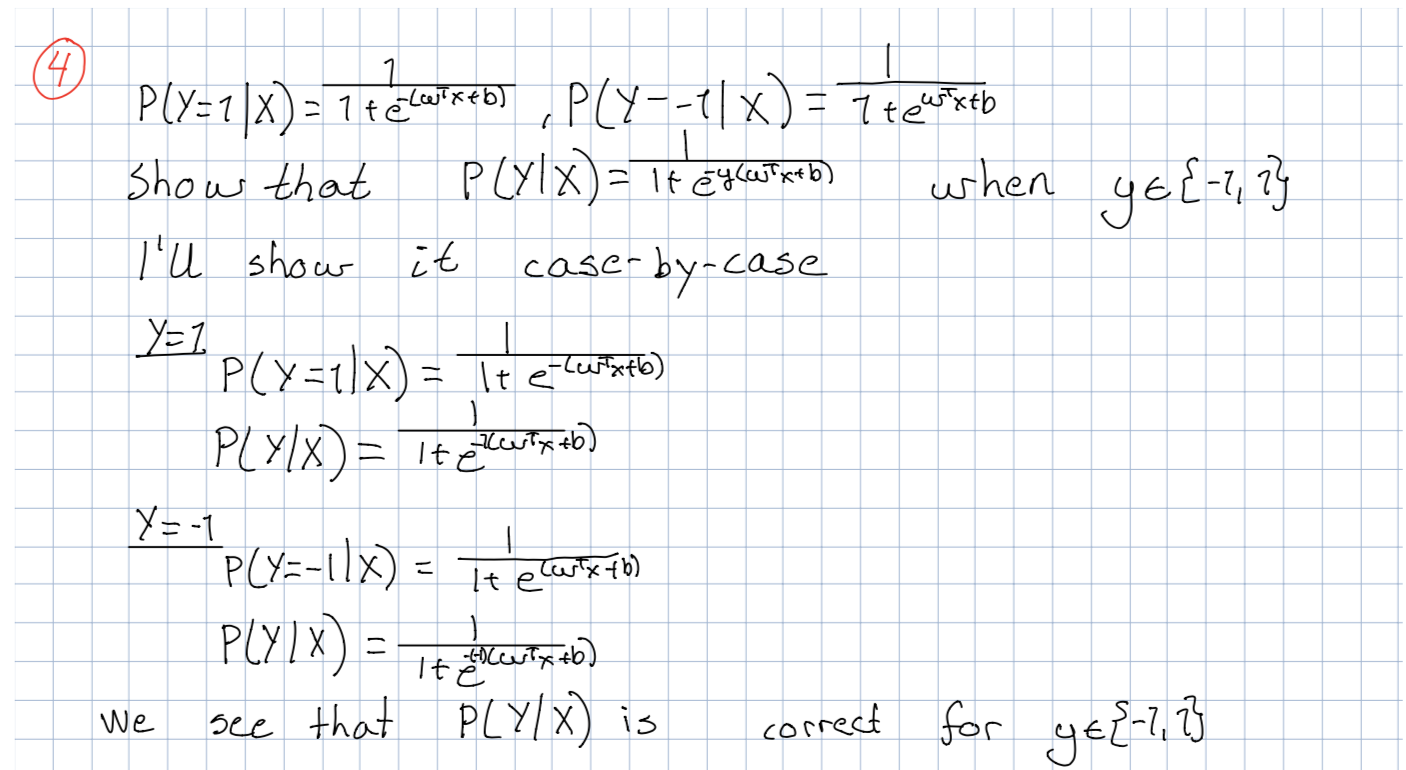 ④
P(Y=1|X) = 1/(1+e^{-(ω^T x+b)}), P(Y--1|X) = 1/(1+e^{ω^T x+b})
Show that P(Y|X) = 1/(1+e^{-y(ω^T x+b)}) when y∈{-1,1}
I'll show it case-by-case
Y=1
P(Y=1|X) = 1/(1+e^{-(ω^T x+b)})
P(Y|X) = 1/(1+e^{-1(ω^T x+b)})
Y=-1
P(Y=-1|X) = 1/(1+e^{(ω^T x+b)})
P(Y|X) = 1/(1+e^{-(-1)(ω^T x+b)})
We see that P(Y|X) is correct for y∈{-1,1}